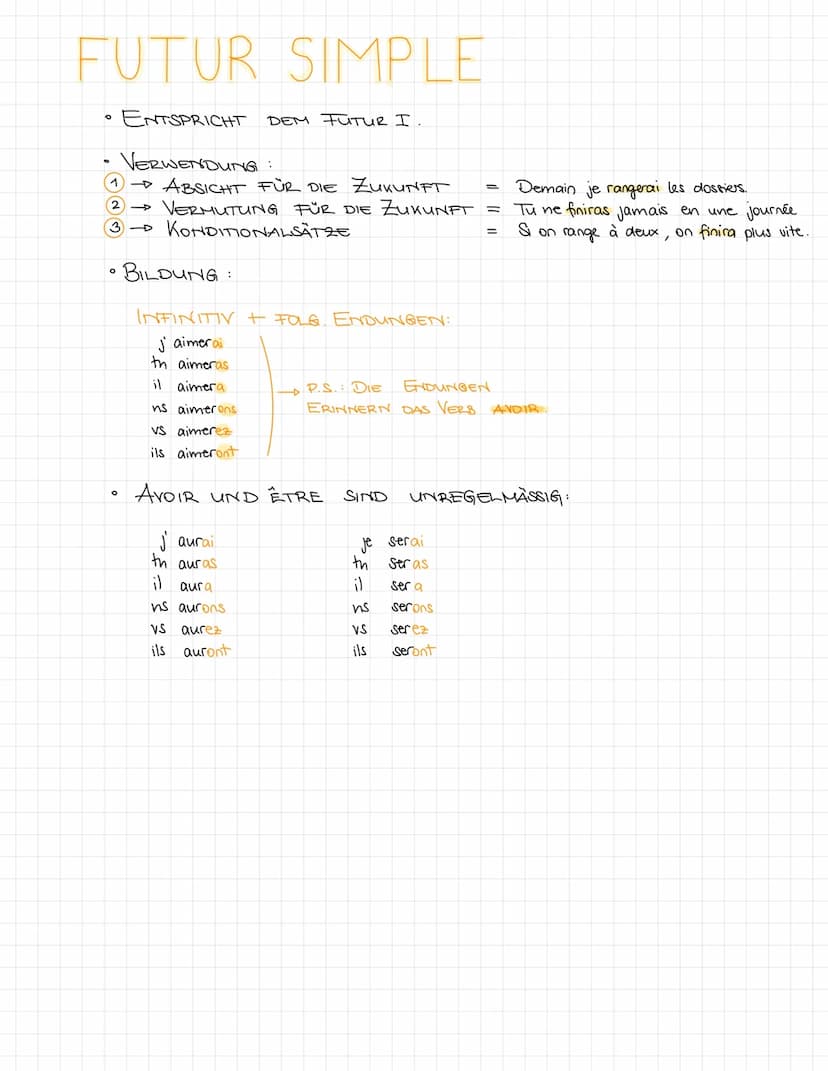 FUTUR SIMPLE
• ENTSPRICHT DEM FUTUR I.
• VERWENDUNG:
1 → ABSICHT FÜR DIE ZUKUNFT = Demain je rangerai les dossiers.
2 → VERMUTUNG FÜR DIE ZUKUNFT = Tu ne finiras jamais en une journée
3 → KONDITIONALSÄTZE = Si on range à deux, on finira plus vite.
• BILDUNG:
INFINITIV + FOLG. ENDUNGEN:
j' aimerai
tu aimeras
il aimera
→ P.S.: DIE ENDUNGEN
ns aimerons
ERINNERN DAS VERB AVOIR.
vs aimerez
ils aimeront
• AVOIR UND ÊTRE SIND UNREGELMÄSSIG:
j' aurai je serai
tu auras tu seras
il aura il sera
ns aurons ns serons
vs aurez vs serez
ils auront ils seront